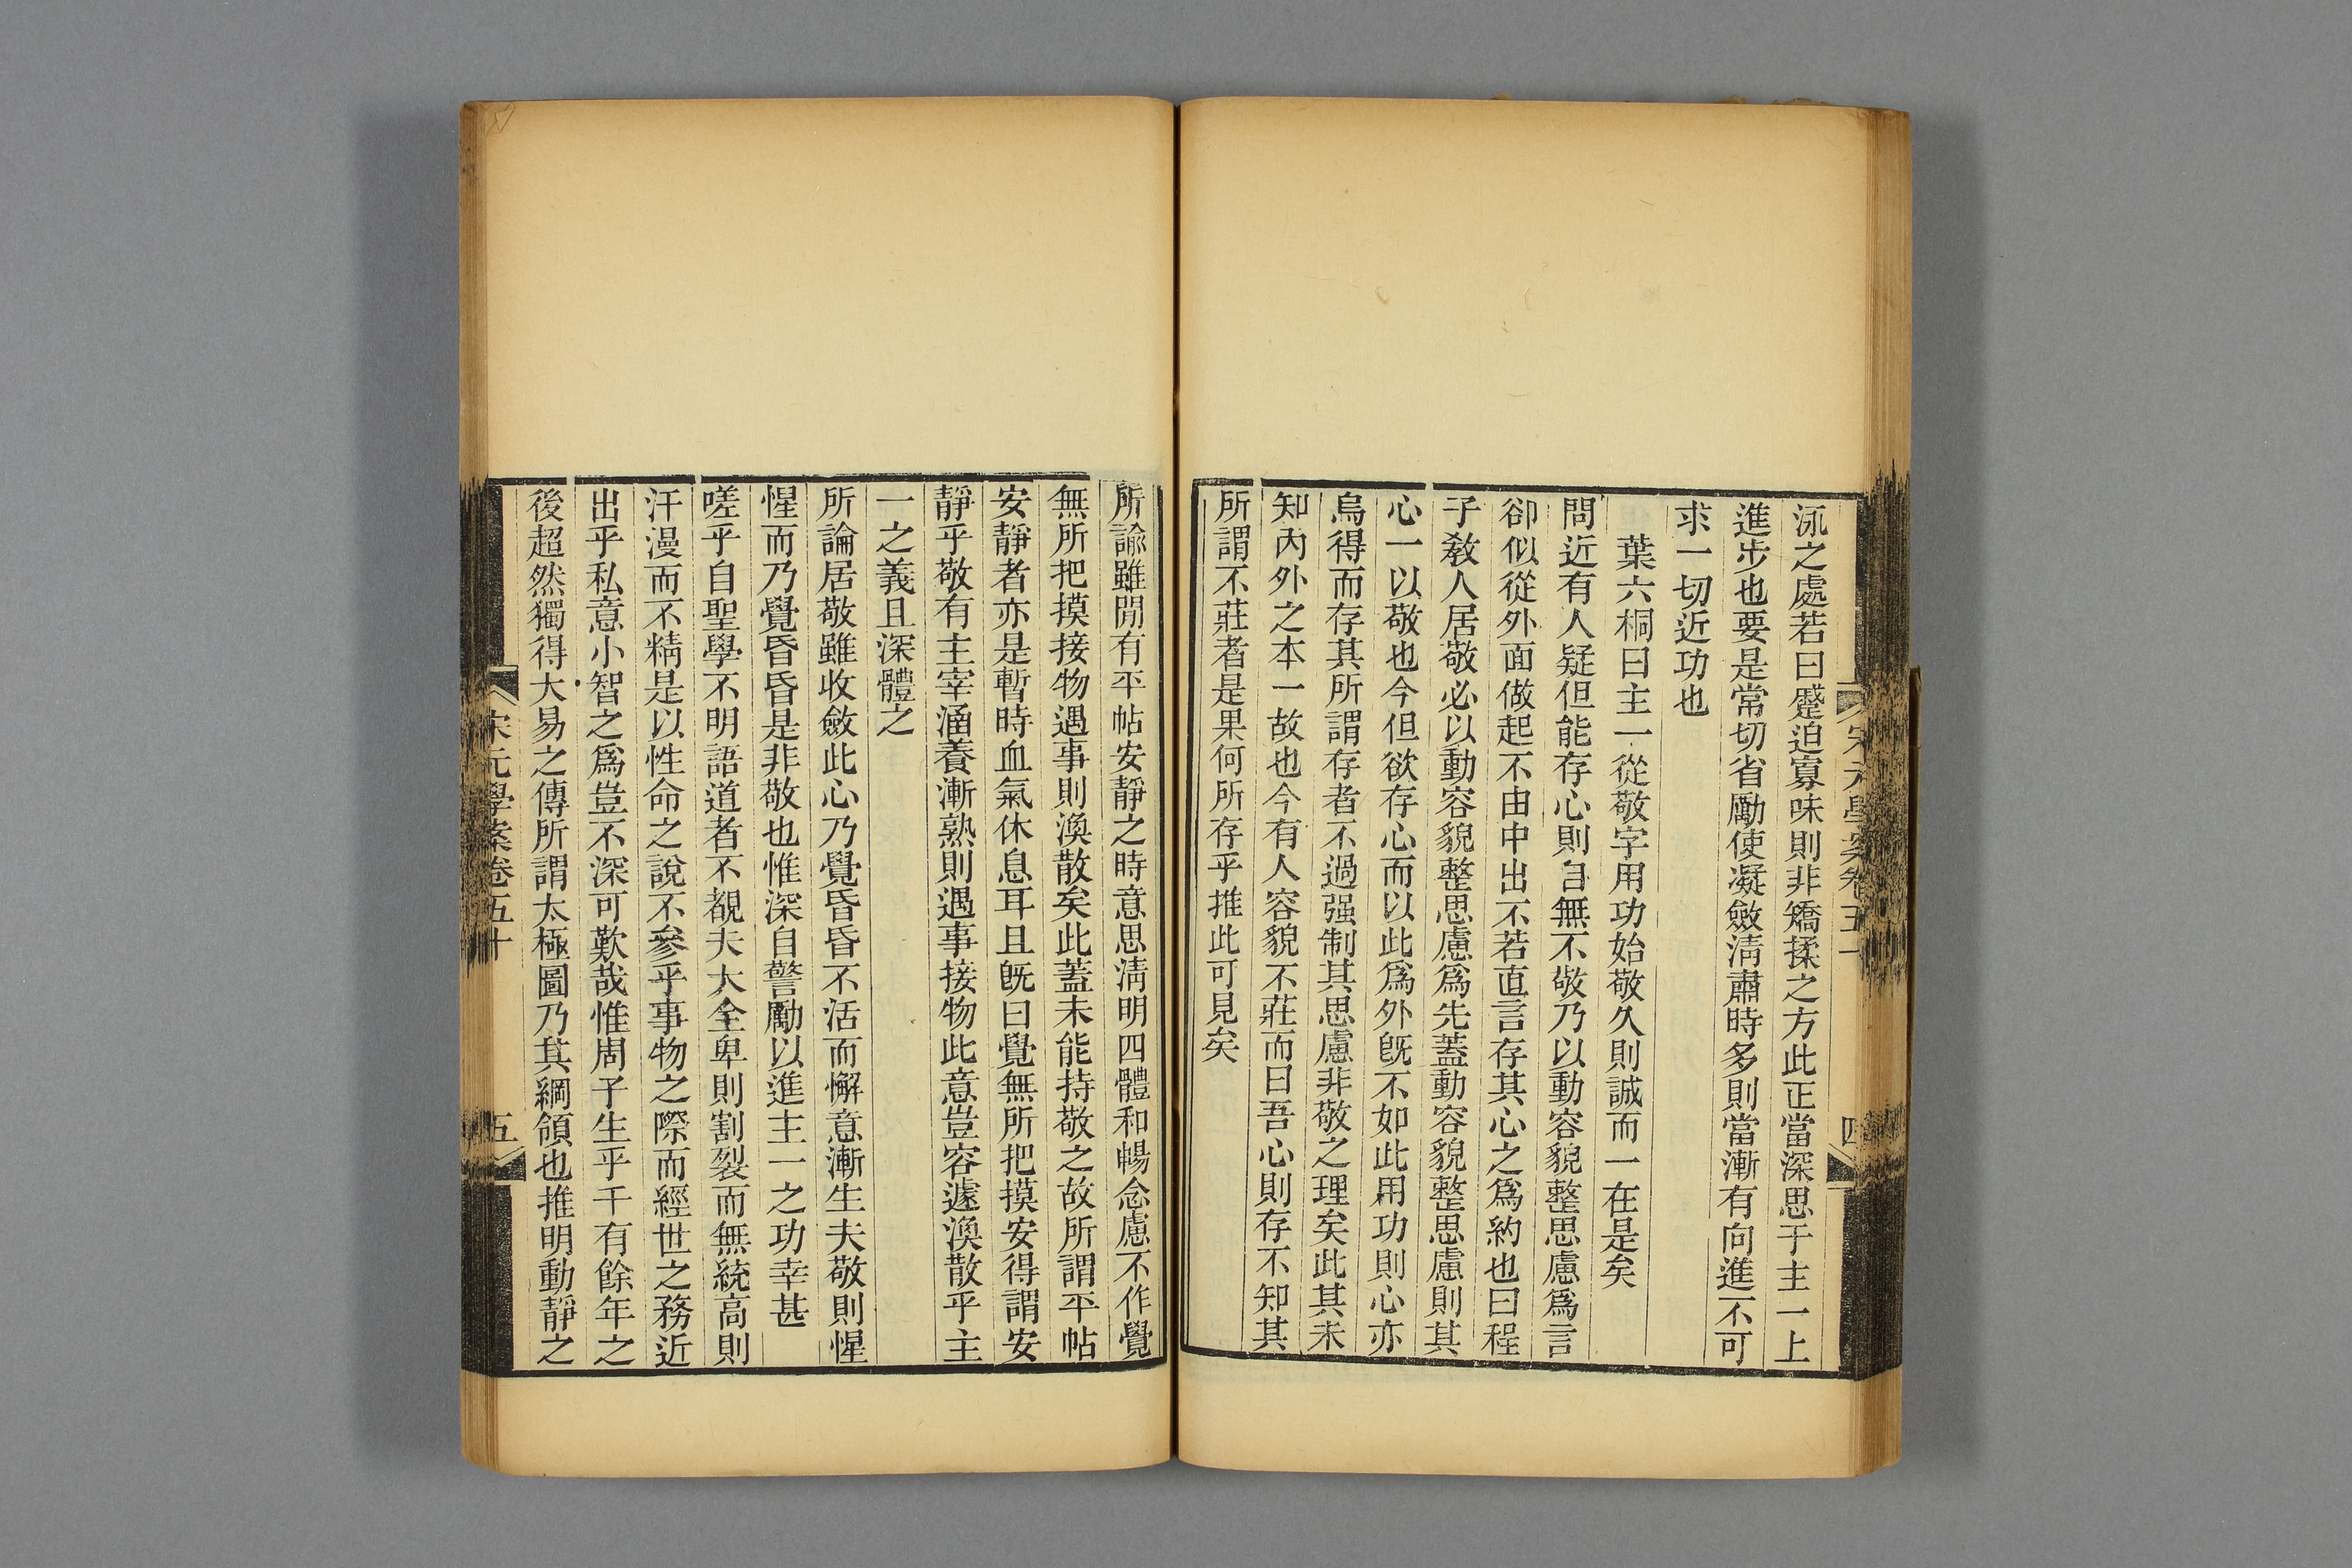 泳之處若曰蹙迫寡味則非矯揉之方此正當深思于主一上
進步也要是常切省勵使凝斂清肅時多則當漸有向進不可
求一切近功也
葉六桐曰主一從敬字用功始敬久則誠而一在是矣
問近有人疑但能存心則自無不敬乃以動容貌整思慮為言
卻似從外面做起不由中出不若直言存其心之為約也曰程
子敎人居敬必以動容貌整思慮為先蓋動容貌整思慮則其
心一以敬也今但欲存心而以此為外旣不如此用功則心亦
烏得而存其所謂存者不過强制其思慮非敬之理矣此其未
知內外之本一故也今有人容貌不莊而曰吾心則存不知其
所謂不莊者是果何所存乎推此可見矣
宋元學案卷五十
四
所諭雖閒有平帖安靜之時意思清明四體和暢念慮不作覺
無所把摸接物遇事則渙散矣此蓋未能持敬之故所謂平帖
安靜者亦是暫時血氣休息耳且旣曰覺無所把摸安得謂安
靜乎敬有主宰涵養漸熟則遇事接物此意豈容遽渙散乎主
一之義且深體之
所論居敬雖收斂此心乃覺昏昏不活而懈意漸生夫敬則惺
惺而乃覺昏昏是非敬也惟深自警勵以進主一之功幸甚
嗟乎自聖學不明語道者不覩夫大全卑則割裂而無統高則
汗漫而不精是以性命之說不參乎事物之際而經世之務近
出乎私意小智之為豈不深可歎哉惟周子生乎千有餘年之
後超然獨得大易之傳所謂太極圖乃其綱領也推明動靜之
宋元學案卷五十
五